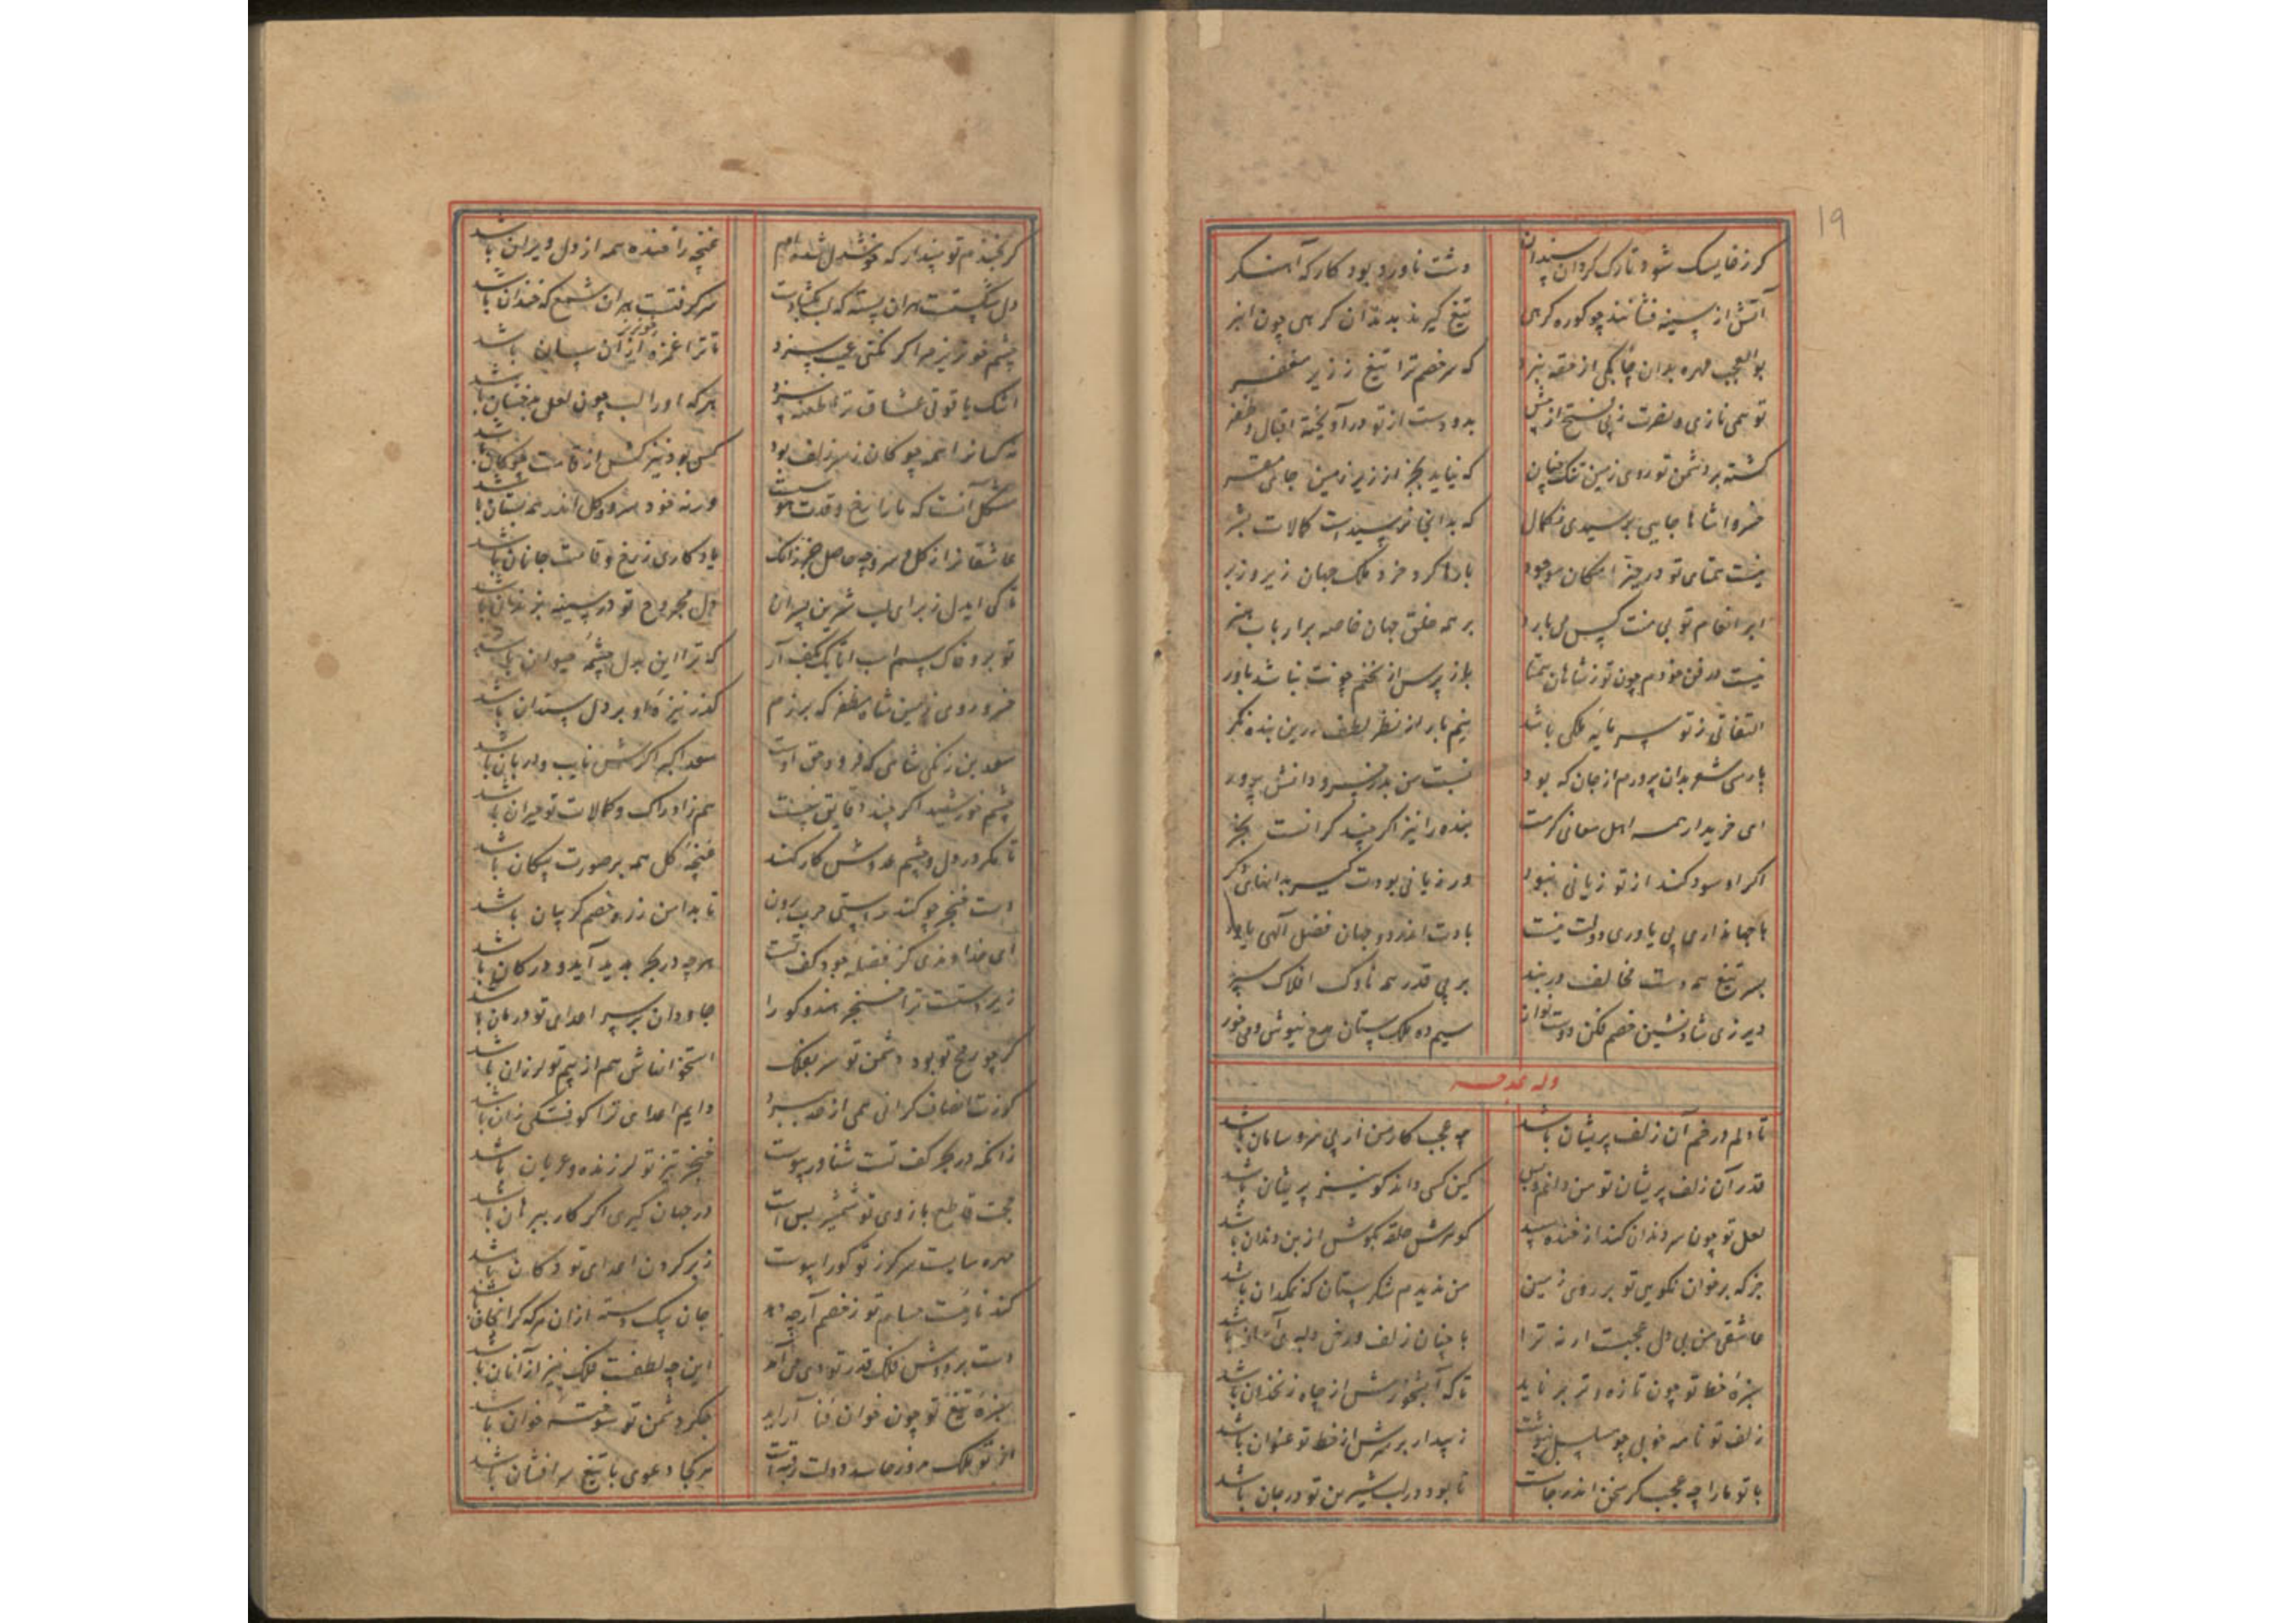 19
کرز خایسک شود تارک گردان سندان
دشت ناورد بود کارکه آهنگر
آتش از سینه فشانند چو کوره کرهی
تیغ گیرند بدندان کرهی چون انبر
بوالعجب مهره بدان چابکی از حقه نبرد
که سر خصم ترا تیغ ز زیر مغفر
تو همی تازی و نصرت ز پی فتح از پیش
بدو دست از تو درآویخته اقبال و ظفر
گشته بر دشمن تو روی زمین تنگ چنان
که نیاید بجز از زیر زمین جای مقر
خسروا شاها جایی برسیدی ز کمال
که بدانجا نرسیدست کمالات بشر
نیست همتای تو در حیز امکان موجود
بارها کرد خرد ملک جهان زیر و زبر
ابر انعام تو بی منت کس می بارد
بر همه خلق جهان خاصه بر ارباب هنر
نیست در فن خودم چون تو ز شاهان همتا
باز پرس از سخنم چونت نباشد باور
التفاتی ز تو سرمایه ملکی باشد
نیم بار از نظر لطف درین بنده نگر
پارسی شعر بدان پرورم از جان که بود
نسبت من بدر خسرو دانش پرور
ای خریدار همه اهل معانی کرمت
بنده را نیز اگر چند گرانست بخر
اگر او سود کند از تو زیانی نبود
ور زیانی بودت گیر بدانهای دگر
تا جهانداری بی یاوری دولت نیست
بادت اندر دو جهان فضل آلهی یاور
بسر تیغ همه دست مخالف در بند
بر پی قدر همه تارک افلاک سپر
دیر زی شاد نشین خصم فکن دوست نواز
سیم ده ملک ستان مدح نیوش و می خور
وله یمدحه
تا دلم در خم آن زلف پریشان باشد
چه عجب کار من ار بی سر و سامان باشد
قدر آن زلف پریشان تو من دانم و بس
کین کسی داند کو نیز پریشان باشد
لعل تو چون سر دندان کند از خنده سپید
گوهرش حلقه بگوش از بن دندان باشد
جز که بر خوان نکویی تو بر روی زمین
من ندیدم شکرستان که نمکدان باشد
عاشقی من بی دل عجبست ار نه ترا
با چنان زلف و رخ دلبری آسان باشد
سبزه خط تو چون تازه و تر بر ناید
تا که آبشخورش از چاه زنخدان باشد
زلف تو نامه خوبی چو مسلسل بنوشت
زیبد ار بر سرش از خط تو عنوان باشد
با تو ما را چه عجب گر سخن اندر جانست
تا بود در لب شیرین تو در جان باشد
گر بخندم تو مپندار که خوشدل شده ام
غنچه را خنده همه از دل ویران باشد
دل شکستست هر آن پسته که لب بگشادست
سر گرفتست هر آن شمع که خندان باشد
چشم خونریز مرا گر نکنی عیب سزد
تا ترا غمزه خونریز از آن سان باشد
اشک یاقوتی عشاق ترا طعنه سزد
هر که او را لب چون لعل بدخشان باشد
نیکوانرا همه چوگان ز سر زلف بود
کس بود نیز کش از قامت چوگان باشد
مشکل آنست که ما را رخ و قدت هوسست
ورنه خود سرو و گل اندر همه بستان باشد
عاشقانرا ز گل و سرو چه حاصل جز از آنک
یادگاری ز رخ و قامت جانان باشد
تا کی ایدل ز برای لب شیرین پسران
دل مجروح تو در سینه بزندان باشد
تو برو خاک سم اسب اتابک بکف آر
که ترا این بدل چشمه حیوان باشد
خسرو روی زمین شاه مظفر که برزم
گذر نیزه او بر دل سندان باشد
سعد بن زنگی شاهی که فرود حق اوست
سعد اکبر اگرش نایب و دربان باشد
چشم خورشید اگر چند دقایق بینست
هم ز ادراک کمالات تو حیران باشد
تا مگر در دل و چشم عدوش کار کند
غنچه گل همه بر صورت پیکان باشد
دست خنجر چو کند راستی حرب برون
تا بدامن زره خصم گریبان باشد
ای خداوندی کز فضله جود کف تست
هر چه در بحر پدید آید و در کان باشد
زبر دستت ترا خنجر هندو کو را
جاودان بر سر اعدای تو درمان باشد
گر چو رمح تو بود دشمن تو سر بفلک
استخوانهاش هم از بیم تو لرزان باشد
گوزت انصاف گرانی همی از حد ببرد
دایم اعدای ترا کوفتگی زان باشد
زانکه در بحر کف تست شناور پیوست
خنجر تیز تو لرزنده و عریان باشد
حجت قاطع بازوی تو شمشیر بس است
در جهان گیری اگر کار ببرهان باشد
مهره سایست سر گرز تو کورا پیوست
زبر گردن اعدای تو دکان باشد
کند نارست حسام تو ز خصم ار چه دهد
جان بیک دسته از آن سر که گرانجان باشد
دست بر دوش فلک قدر تو دی می آمد
این چه لطفست فلک نیز از آنان باشد
سبزه تیغ تو چون خوان فنا آراید
جگر دشمن تو سوخته خوان باشد
از تو ملک هر کجا دعوی با تیغ سرافشان باشد